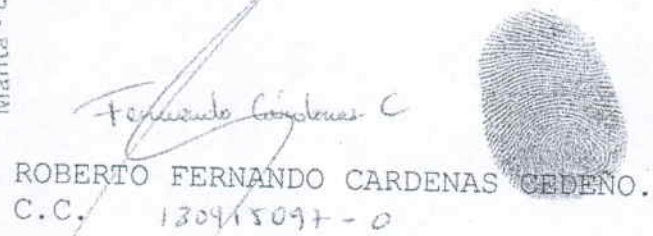 Manta
Fernando Cárdenas C
ROBERTO FERNANDO CARDENAS CEDEÑO.
C.C. 130915097-0